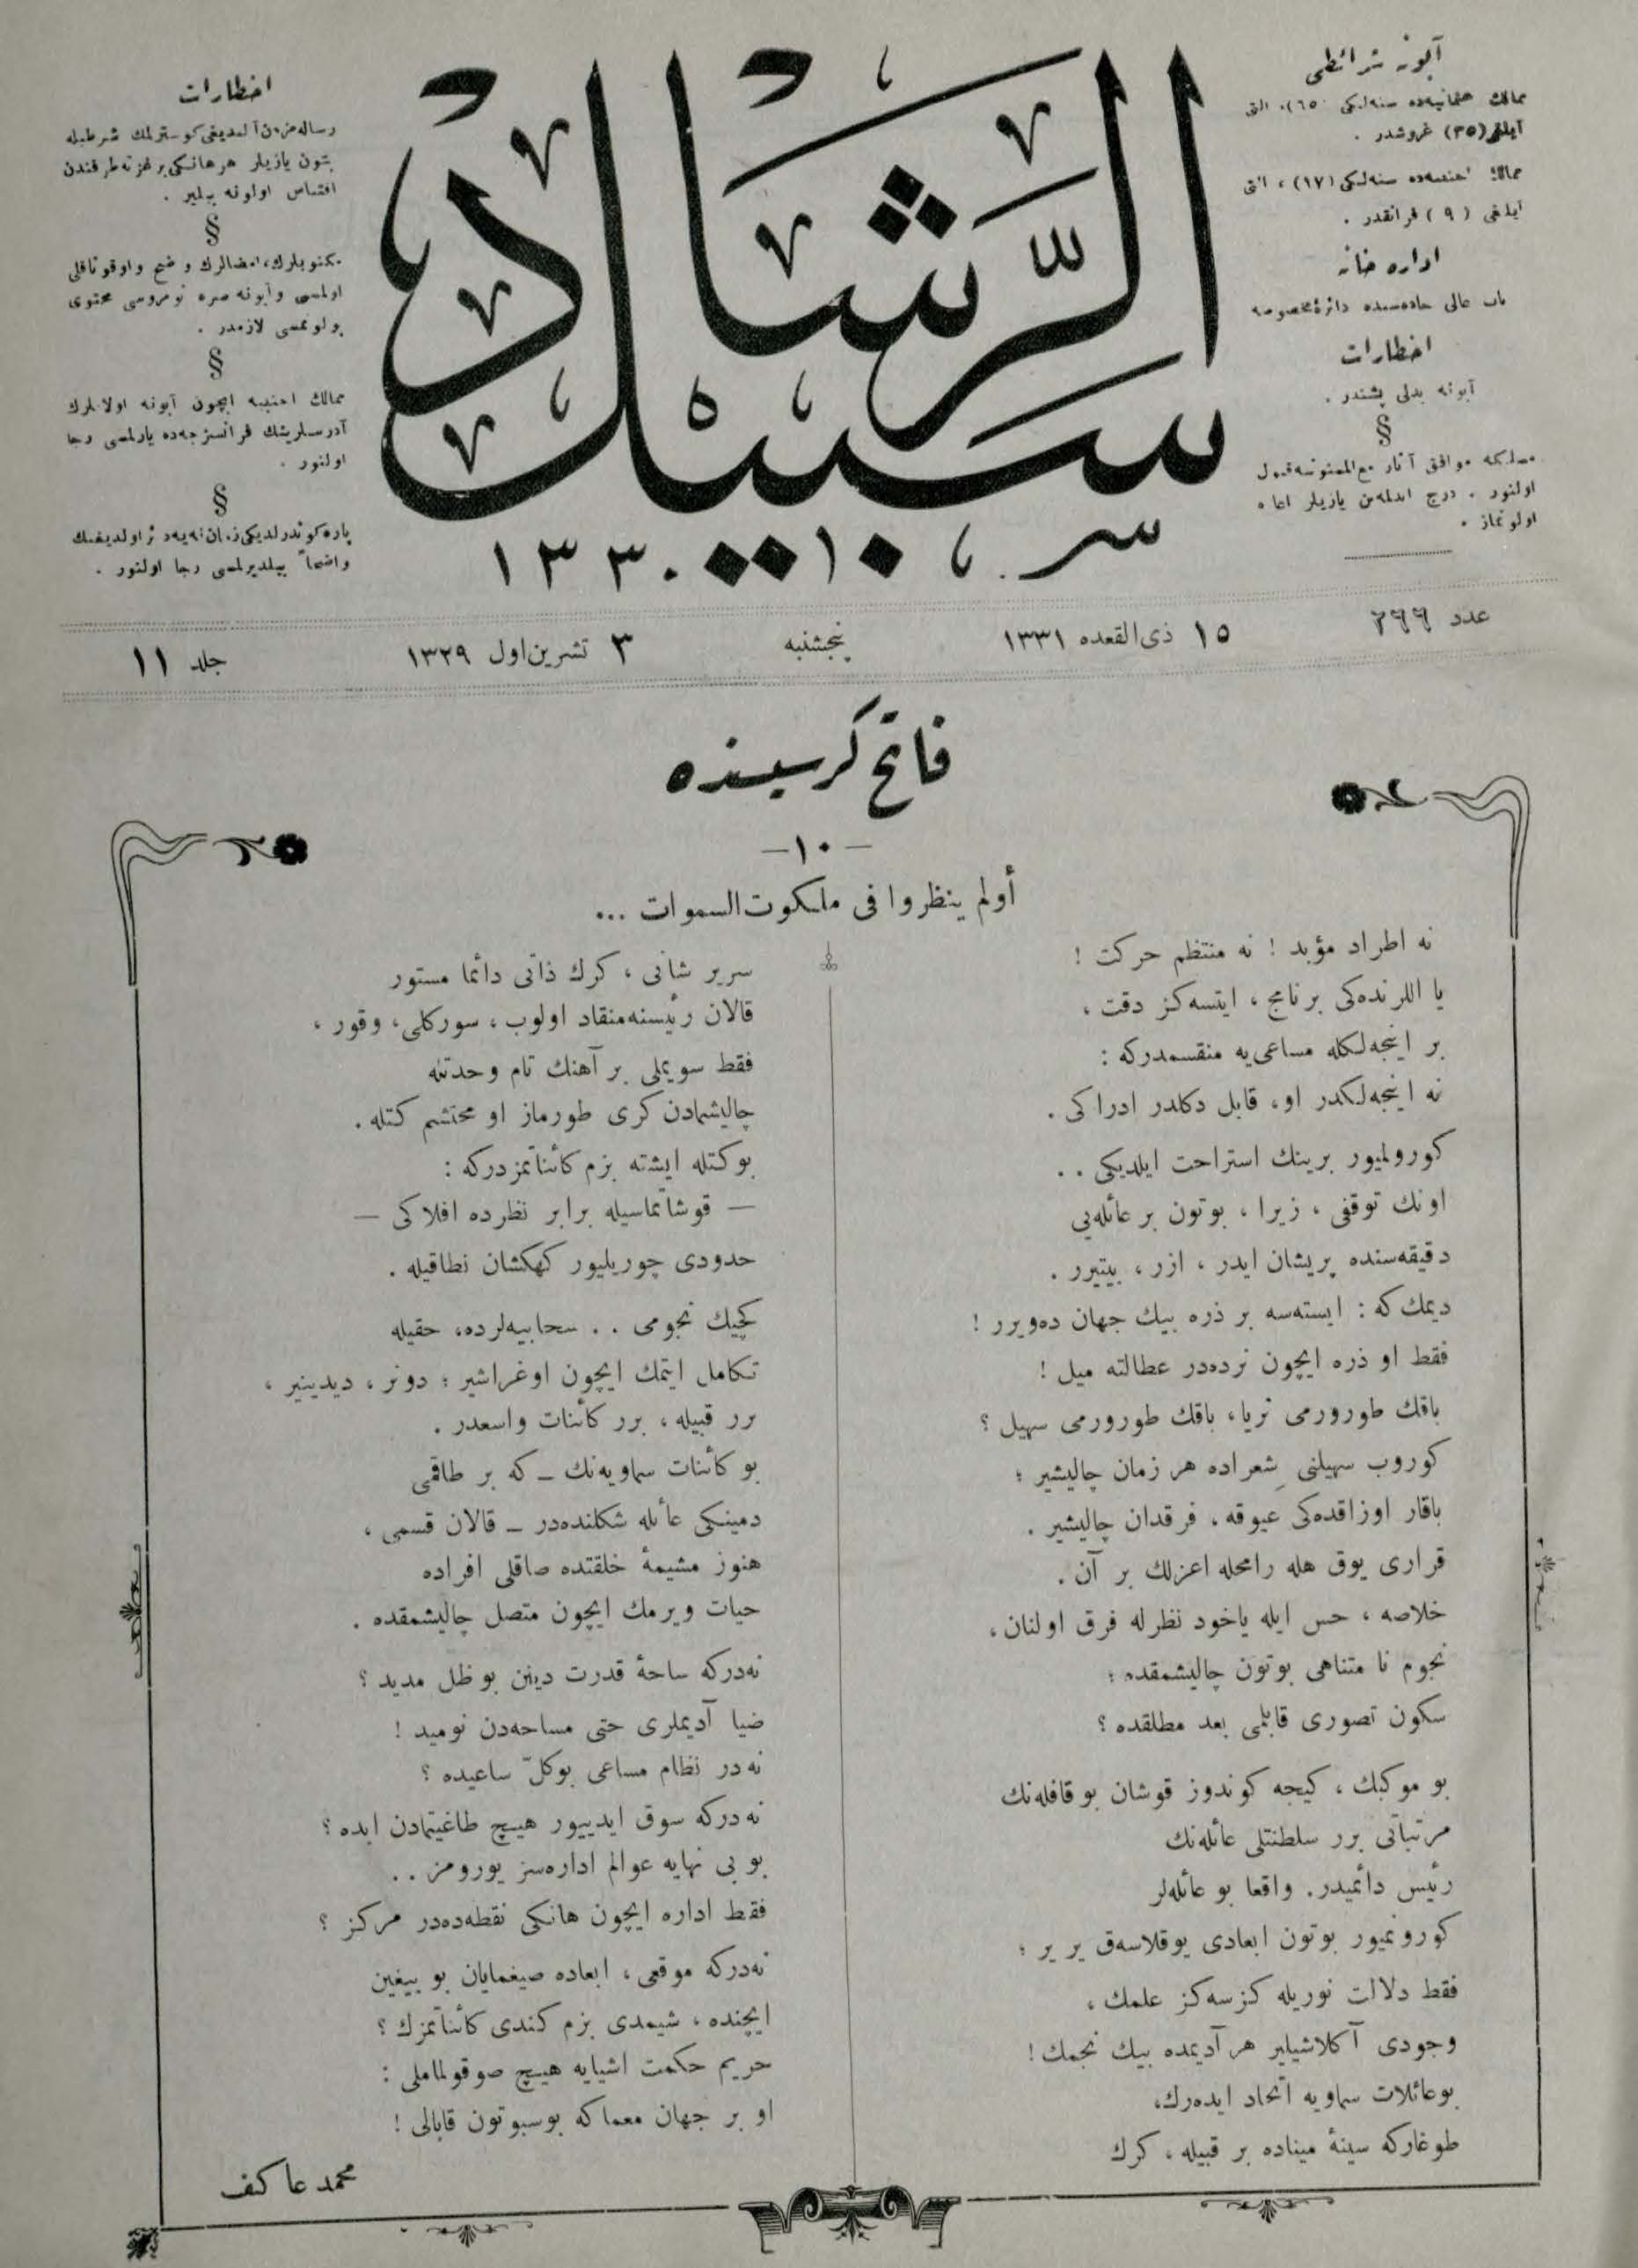 آبونه شرائطی
ممالك عثمانیه‌ده سنه‌لكی (٦٥)، التی
آیلغی (٣٥) غروشدر .
ممالك اجنبیه‌ده سنه‌لكی (١٧) ، التی
آیلغی (٩) فرانقدر .
اداره خانه
باب عالی جاده‌سنده دائرۀ مخصوصه
اخطارات
آبونه بدلی پشیندر .
§
مسلكه موافق آثار مع‌الممنونیه قبول
اولنور . درج ایدلمه‌ین یازیلر اعاده
اولونماز .
سبیل الرشاد
١٣٣٠
اخطارات
رساله‌مزدن آلندیغی كوسترلمك شرطیله
بتون یازیلر هر هانكی بر غزته طرفندن
اقتباس اولونه بیلیر .
§
مكتوبلرك، امضالرك واضح و اوقوناقلی
اولمسی و آبونه صره نومروسی محتوی
بولونمسی لازمدر .
§
ممالك اجنبیه ایچون آبونه اولانلرك
آدرسلرینك فرانسزجه‌ده یازلمسی رجا
اولنور .
§
پاره كوندرلدیكی زمان نه‌یه دائر اولدیغنك
واضحاً بیلدیرلمسی رجا اولنور .
عدد ٢٦٦
١٥ ذی‌القعده ١٣٣١
پنجشنبه
٣ تشرین اول ١٣٢٩
جلد ١١
فاتح كرسیسنده
— ١٠ —
أولم ینظروا فی ملكوت‌السموات ...
نه اطراد مؤبد ! نه منتظم حركت !
یا اللرنده‌كی برنامج ، ایتسه‌كز دقت ،
بر اینجه‌لكله مساعی‌یه منقسمدركه :
نه اینجه‌لكدر او، قابل دكلدر ادراكی .
كورولمیور برینك استراحت ایلدیكی . .
اونك توقفی ، زیرا ، بوتون بر عائله‌یی
دقیقه‌سنده پریشان ایدر ، ازر ، بیتیرر .
دیمك كه : ایسته‌سه بر ذره بیك جهان ده‌ویرر !
فقط او ذره ایچون نرده‌در عطالته میل !
باقك طورورمی ثریا، باقك طورورمی سهیل ؟
كوروب سهیلنی شِعراده هر زمان چالیشیر ؛
باقار اوزاقده‌كی عیوقه، فرقدان چالیشیر .
قراری یوق هله رامحله اعزلك بر آن .
خلاصه ، حس ایله یاخود نظرله فرق اولنان ،
نجوم نا متناهی بوتون چالیشمقده ؛
سكون تصوری قابلمی بعد مطلقده ؟
بو موكبك ، كیجه كوندوز قوشان بو قافله‌نك
مرتباتی برر سلطنتلی عائله‌نك
رئیس دائمیدر. واقعا بو عائله‌لر
كورونمیور بوتون ابعادی یوقلاسه‌ق یر یر ؛
فقط دلالت نوریله كزسه‌كز علمك ،
وجودی آكلاشیلیر هر آدیمده بیك نجمك !
بو عائلات سماویه اتحاد ایده‌رك،
طوغاركه سینۀ میناده بر قبیله ، كرك
سریر شانی ، كرك ذاتی دائما مستور
قالان رئیسنه منقاد اولوب ، سوركلی، وقور ،
فقط سویملی بر آهنك تام وحدتله
چالیشمادن كری طورماز او محتشم كتله .
بو كتله ایشته بزم كائناتمزدركه :
— قوشاتماسیله برابر نظرده افلاكی —
حدودی چوریلیور كهكشان نطاقیله .
كچیك نجومی . . سحابیه‌لرده، حقیله
تكامل ایتمك ایچون اوغراشیر ؛ دونر ، دیدینیر ،
برر قبیله ، برر كائنات واسعدر .
بو كائنات سماویه‌نك — كه بر طاقمی
دمینكی عائله شكلنده‌در — قالان قسمی ،
هنوز مشیمۀ خلقتده صاقلی افراده
حیات ویرمك ایچون متصل چالیشمقده .
نه‌دركه ساحۀ قدرت دینن بو ظل مدید ؟
ضیا آدیملری حتی مساحه‌دن نومید !
نه‌در نظام مساعی بو كلّ ساعیده ؟
نه‌دركه سوق ایدییور هیچ طاغیتمادن ابده ؟
بو بی نهایه عوالم اداره‌سز یورومز . .
فقط اداره ایچون هانكی نقطه‌ده‌در مركز ؟
نه‌دركه موقعی ، ابعاده صیغمایان بو ییغین
ایچنده ، شیمدی بزم كندی كائناتمزك ؟
حریم حكمت اشیایه هیچ صوقولماملی :
او بر جهان معماكه بوسبوتون قاپالی !
محمد عاكف